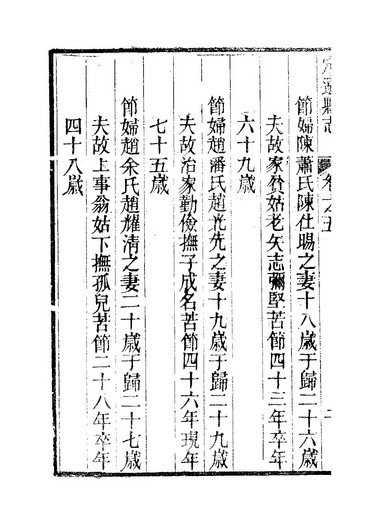 遠縣志 卷之五
節婦陳蕭氏陳仕暘之妻十八歲于歸二十六歲
夫故家貧姑老矢志彌堅苦節四十三年卒年
六十九歲
節婦趙潘氏趙光先之妻十九歲于歸二十九歲
夫故治家勤儉撫子成名苦節四十六年現年
七十五歲
節婦趙余氏趙耀清之妻二十歲于歸二十七歲
夫故上事翁姑下撫孤兒苦節二十八年卒年
四十八歲